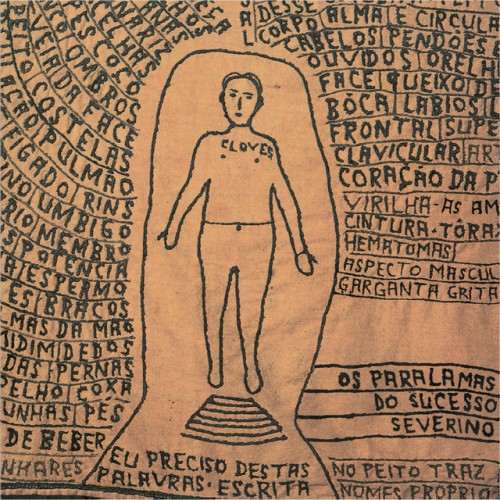 NARIZ
ORELHAS
PESCOÇO
OMBROS
VEIA DA FACE
PEITO COSTELAS
PULMÃO
FIGADO RINS
UMBIGO
MEMBRO
POTENCIA
ESPERMO
BRAÇOS
MAS DA MÃO
DEDOS
DAS PERNAS
COXA
UNHAS PÉS
DE BEBER
NHARES
CLOVES
EU PRECISO DESTAS
PALAVRAS. ESCRITA
DESSE
CORPO ALMA E CIRCULA
CABELOS PENDÕES
OUVIDOS ORELH
FACE QUEIXO DE
BÔCA LABIOS
FRONTAL SUPE
CLAVICULAR AR
CORAÇÃO DA P
VIRILHA-AS AM
CINTURA-TÔRAX
HEMATOMAS
ASPECTO MASCUL
GARGANTA GRITA
OS PARALAMAS
DO SUCESSO
SEVERINO
NO PEITO TRAZ
NOMES PROPRIO